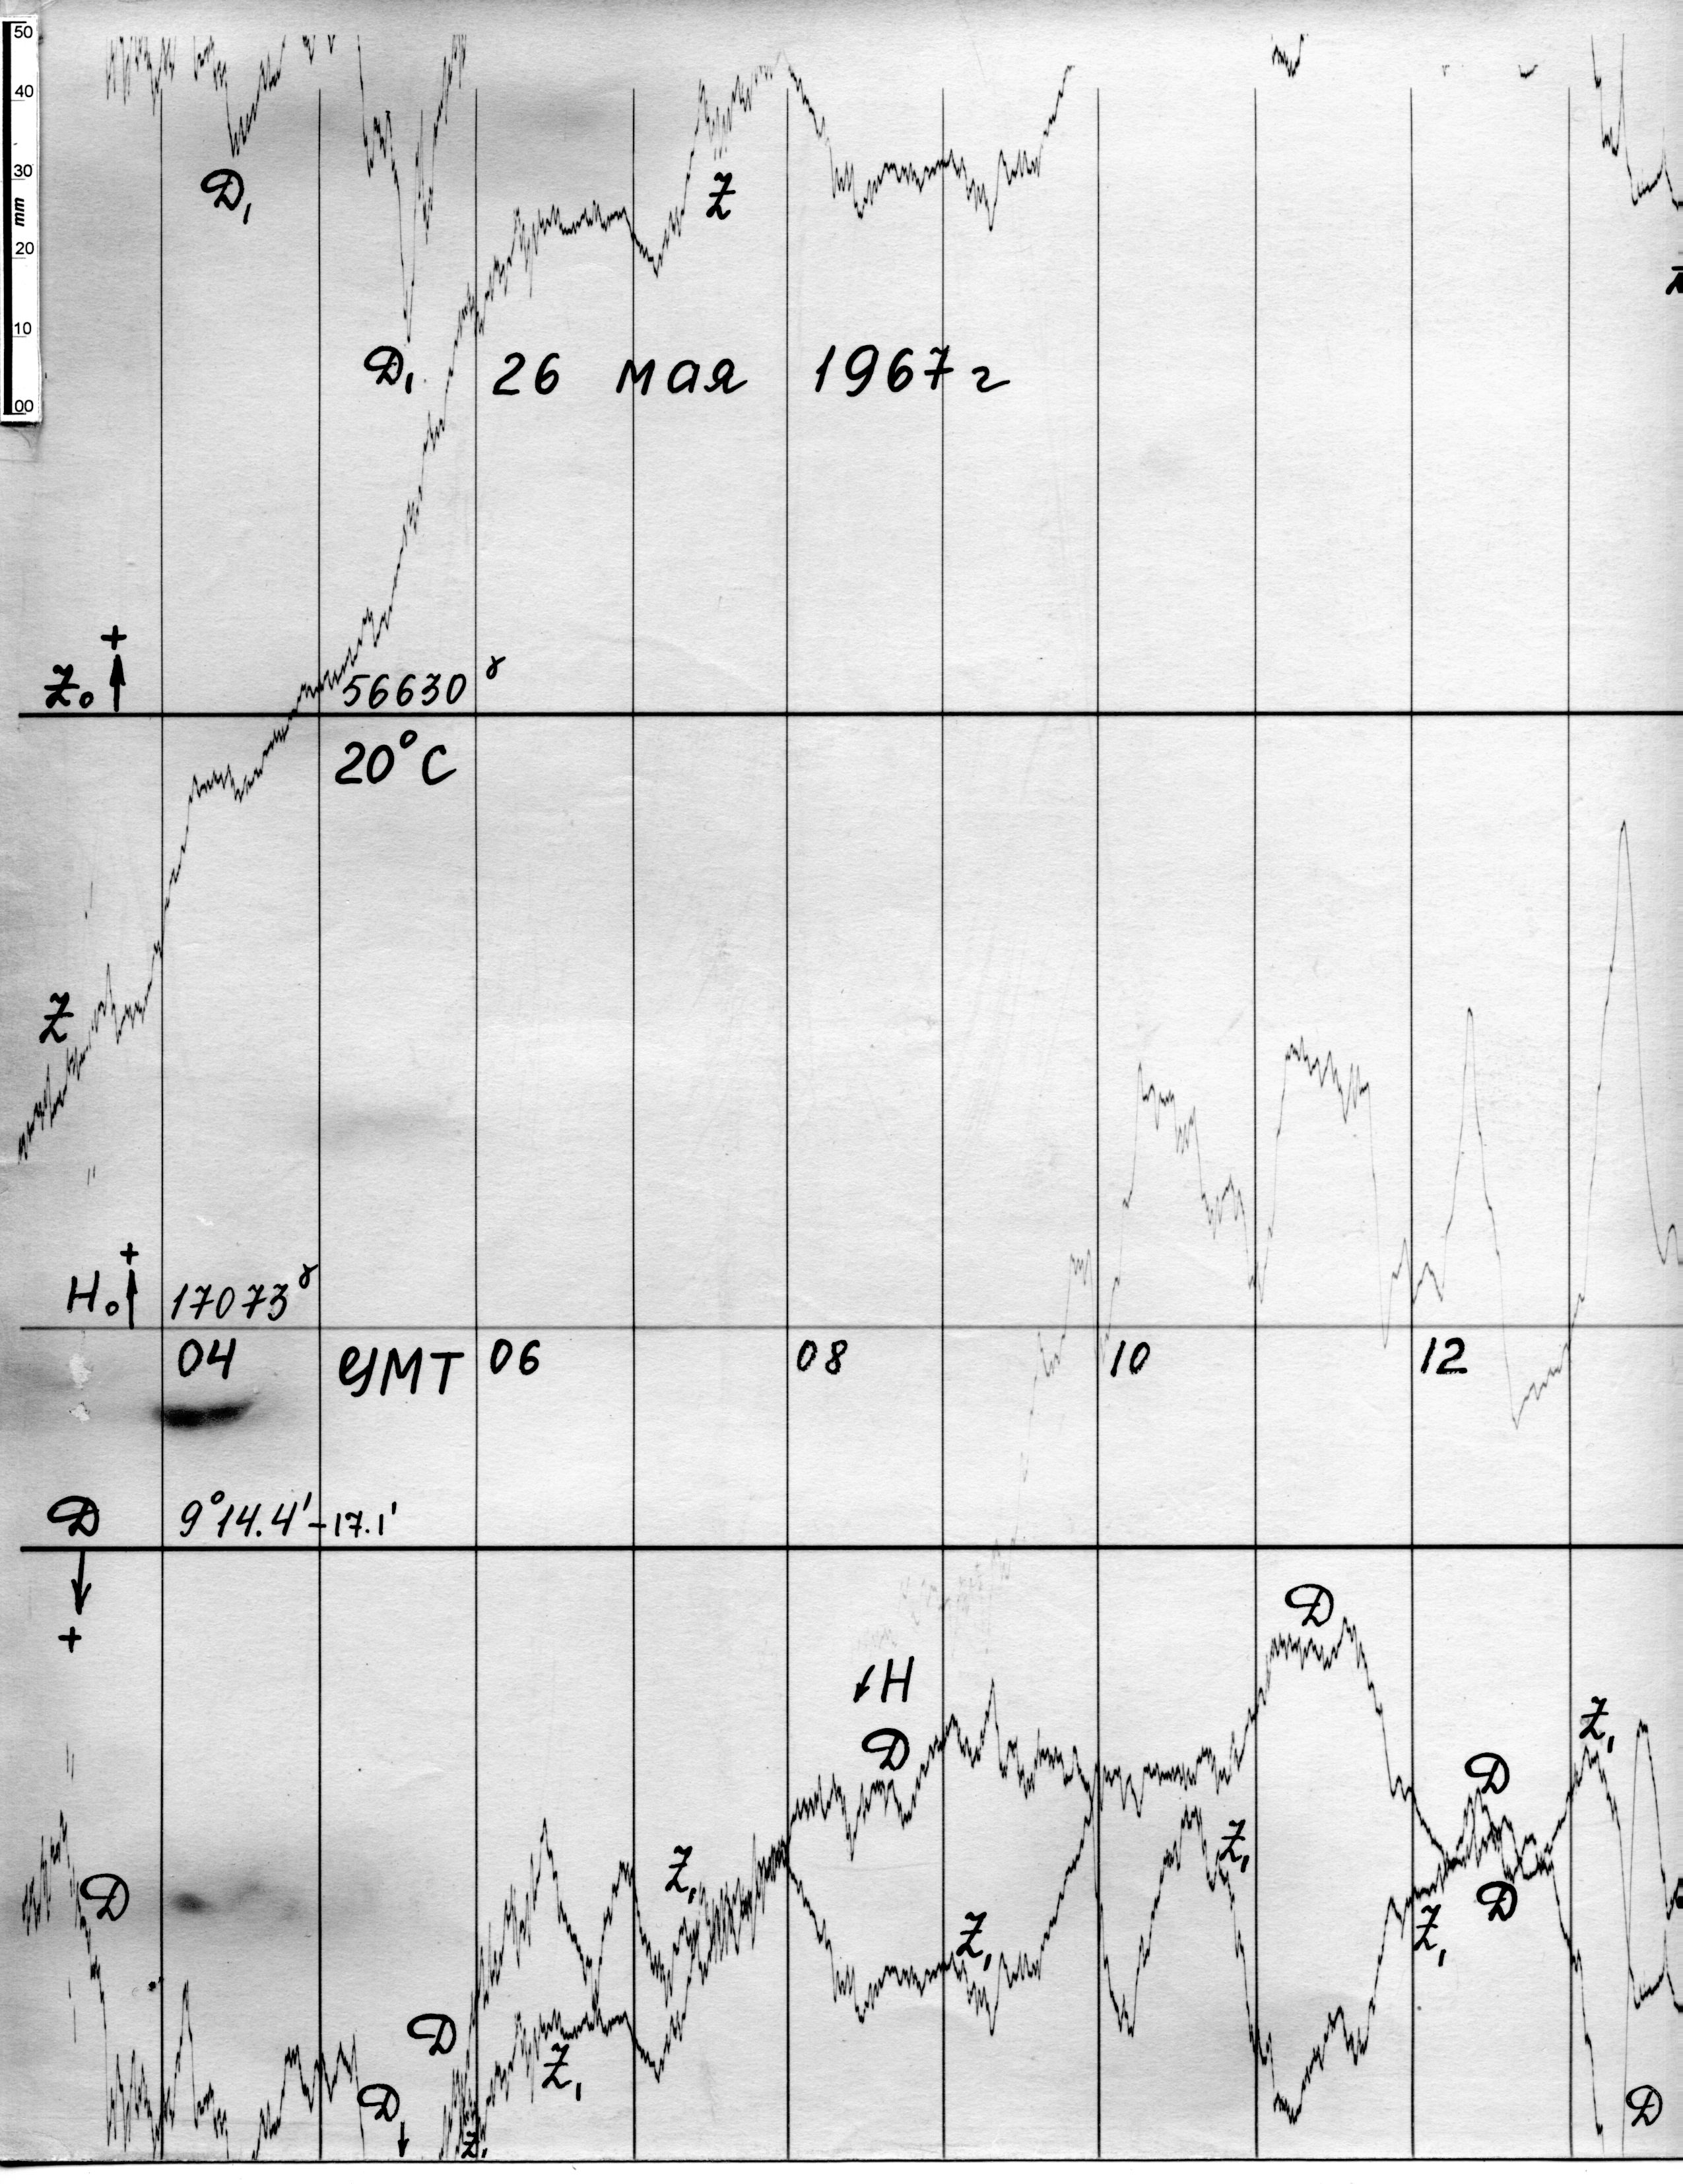 50
40
30
mm
20
10
00
Д₁
Z
Z
Д₁
26 мая 1967 г
+
Z₀ 56630 γ
20°C
Z
+
H₀ 17073 γ
04 УМТ 06 08 10 12
D 9°14.4' -17.1'
+
D
H
D
Z₁
D
Z₁
D
Z₁
D
Z₁
Z₁
D
Z₁
D
Z₁
D
D
Z₁